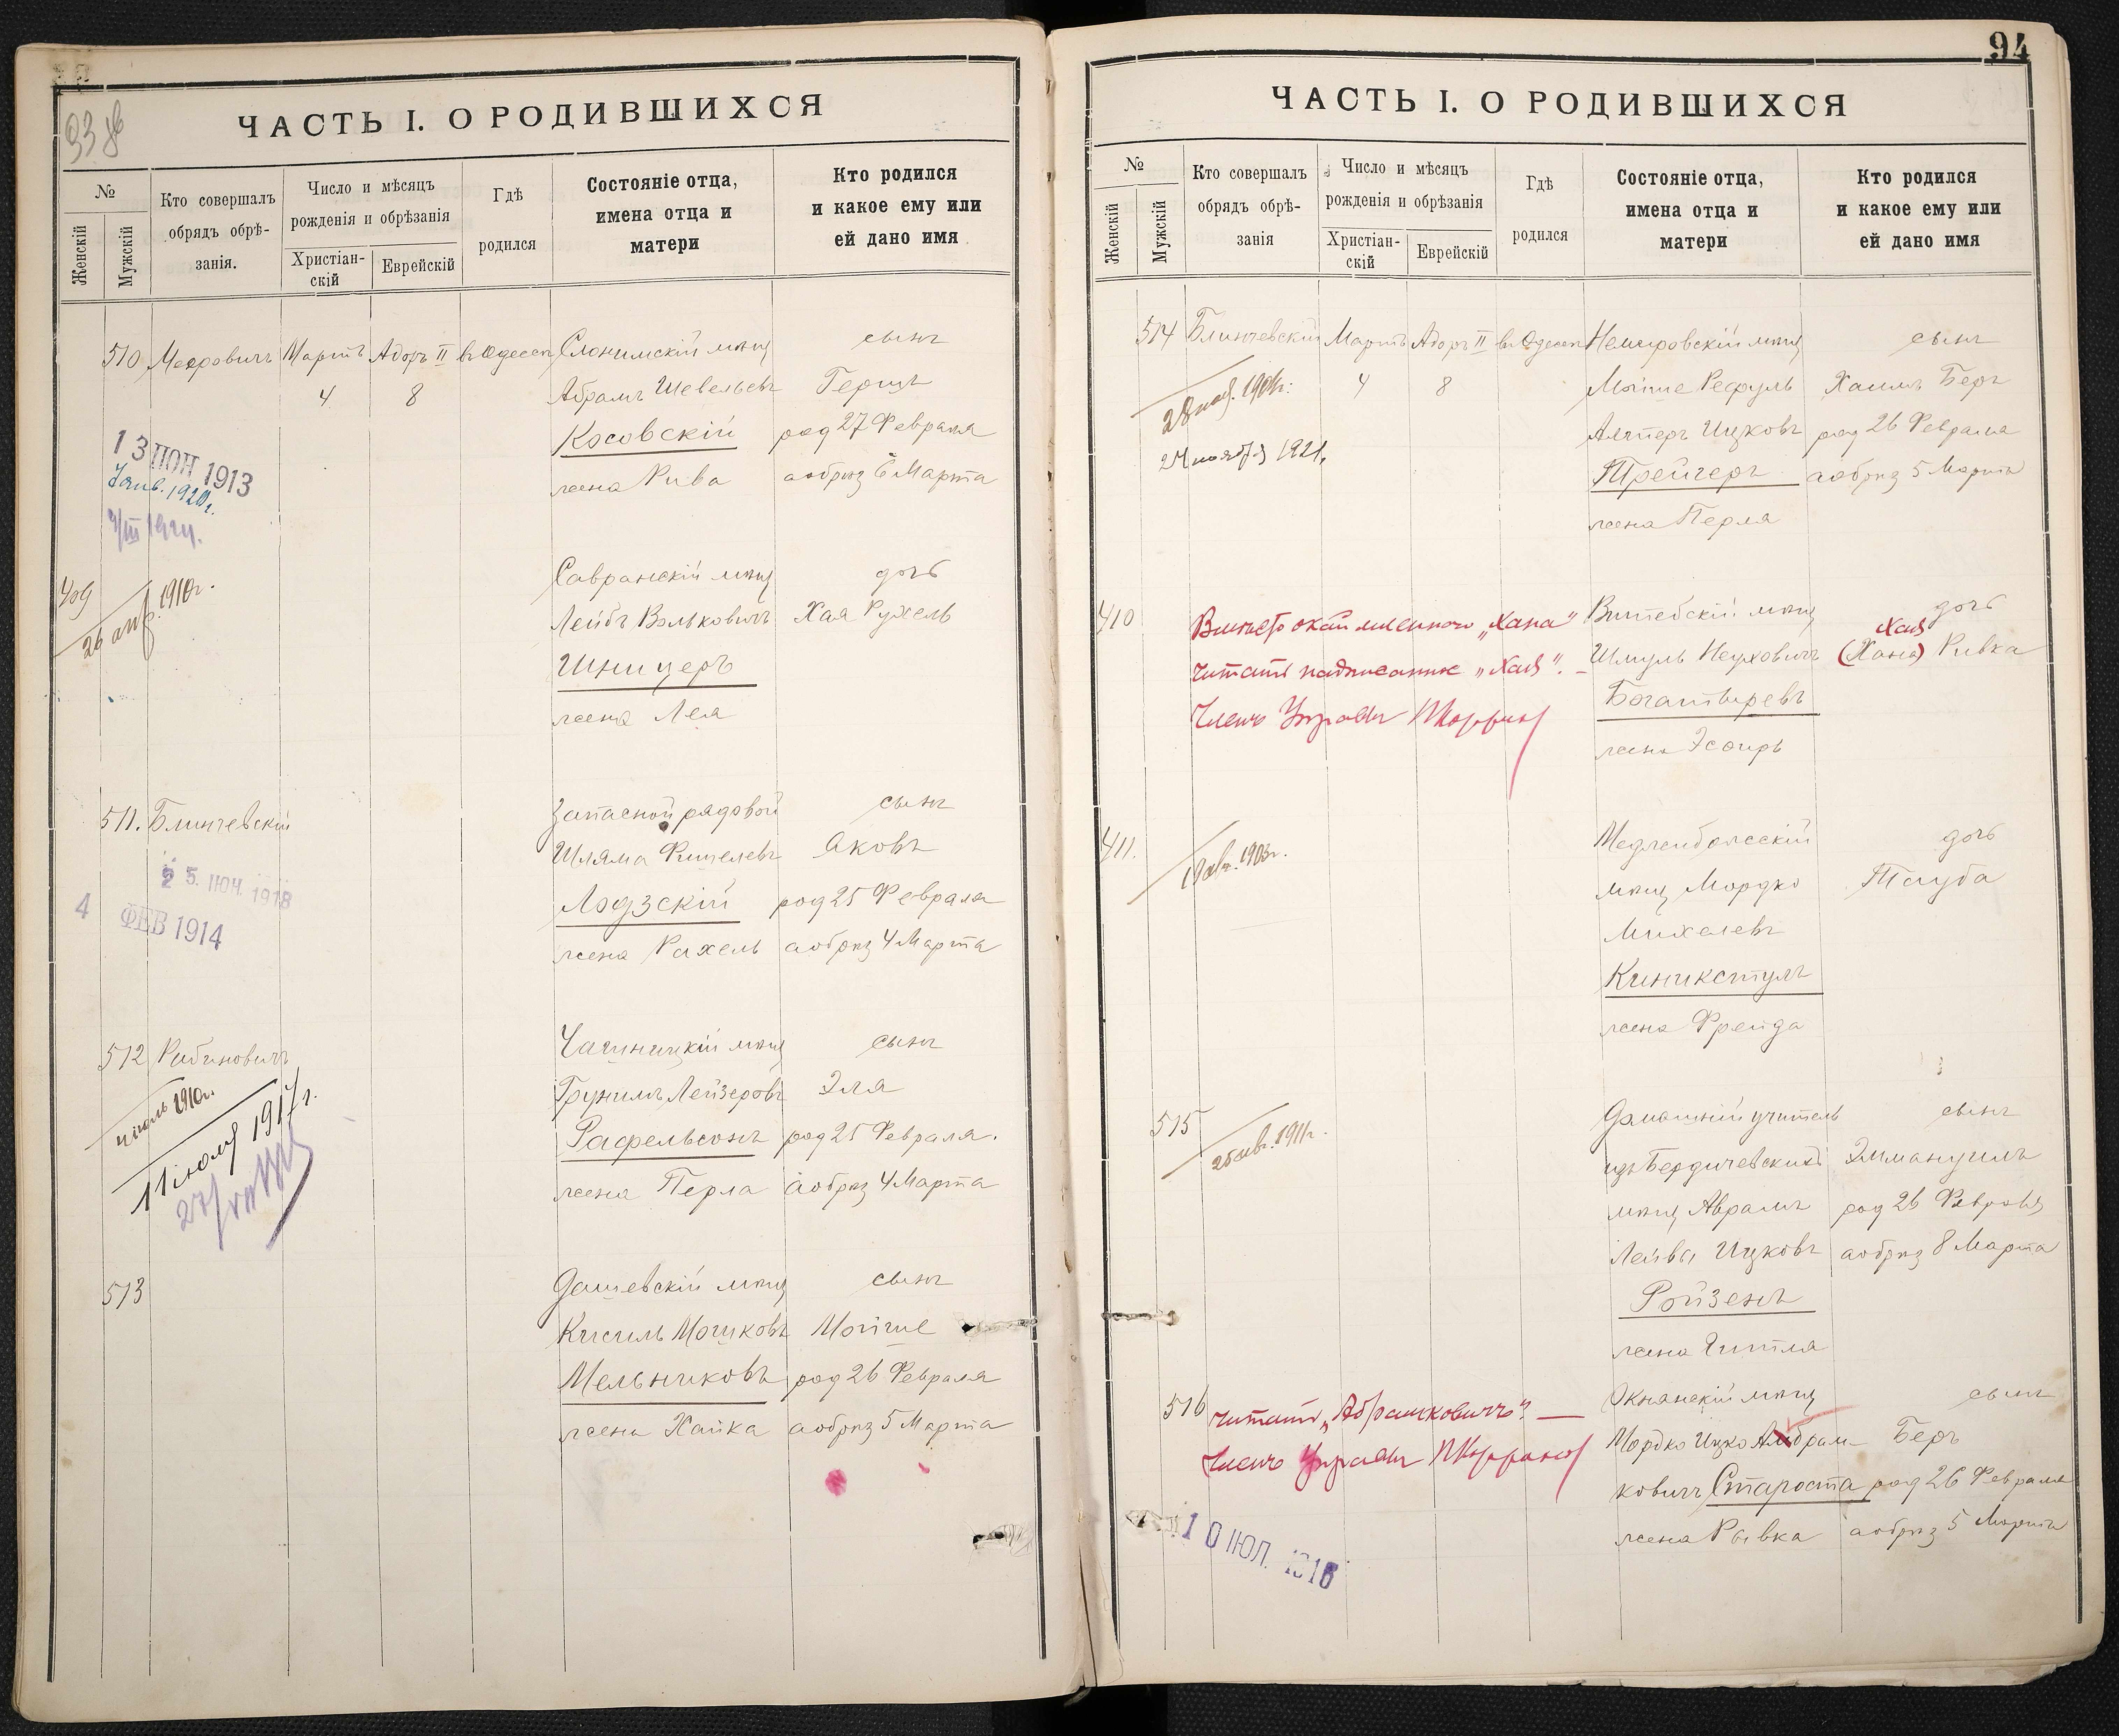 93 об
ЧАСТЬ I. О РОДИВШИХСЯ
№
Женскій
Мужскій
Кто совершалъ
обрядъ обрѣ-
занія.
Число и мѣсяцъ
рожденія и обрѣзанія
Христіан-
скій
Еврейскій
Гдѣ
родился
Состояніе отца,
имена отца и
матери
Кто родился
и какое ему или
ей дано имя
510 Меерович Мартъ Адоръ II въ Одессѣ Слонимскій мѣщ сынъ
4 8 Абрамъ Шевелевъ Герцъ
Косовскій род 27 Февраля
жена Рива а обрѣз 6 Марта
13 ІЮН 1913
7 янв. 1920 г.
409 Савранскій мѣщ дочь
26 апр. 1910 г. Лейбъ Вольковичъ Хая Рухель
Шницеръ
жена Лея
511. Блинчевскій Запасной рядовой сынъ
Шляма Фишелевъ Яковъ
25. ІЮН. 1918
4 ФЕВ 1914
Лодзскій род 25 Февраля
жена Рахель а обрѣз 4 Марта
512 Рабиновичъ Чашницкій мѣщ сынъ
1910 г. Грунимъ Лейзеровъ Эля
11 іюля 1917 г. Рафельсонъ род 25 Февраля.
жена Перла а обрѣз 4 Марта
513 Дашевскій мѣщ сынъ
Кисиль Мошковъ Мойше
Мельниковъ род 26 Февраля
жена Хайка а обрѣз 5 Марта
94
ЧАСТЬ I. О РОДИВШИХСЯ
№
Женскій
Мужскій
Кто совершалъ
обрядъ обрѣ-
занія
Число и мѣсяцъ
рожденія и обрѣзанія
Христіан-
скій
Еврейскій
Гдѣ
родился
Состояніе отца,
имена отца и
матери
Кто родился
и какое ему или
ей дано имя
514 Блинчевскій Мартъ Адоръ II въ Одессѣ Немировскій мѣщ сынъ
4 8 Мойше Рефуль Хаимъ Беръ
24 ноября 1921 г. Альтеръ Ицковъ род 26 Февраля
Трейгеръ а обрѣз 5 Марта
жена Перля
410 Витебскій мѣщ дочь
Вмѣсто окаймленного „Хана" Шмуль Неуховичъ Хая (Хана) Ривка
читать надписанное „Хая". –
Богатыревъ
Членъ Управы
жена Эсфирь
411. Меджибожскій дочь
1903 г. мѣщ Мордко Тауба
Михелевъ
Киникстулъ
жена Фрейда
515 Домашній учитель сынъ
25 1911 г. изъ Бердичевскихъ Эммануилъ
мѣщ Аврамъ род 26 Февраля
Лейва Ицковъ а обрѣз 8 Марта
Ройзенъ
жена Гитля
516 Окнянскій мѣщ сынъ
читать „Абрамковичъ". – Мордко Ицко Амбрам- Беръ
Членъ Управы
ковичъ Староста род 26 Февраля
жена Рывка а обрѣз 5 Марта
10 ІЮЛ. 1916